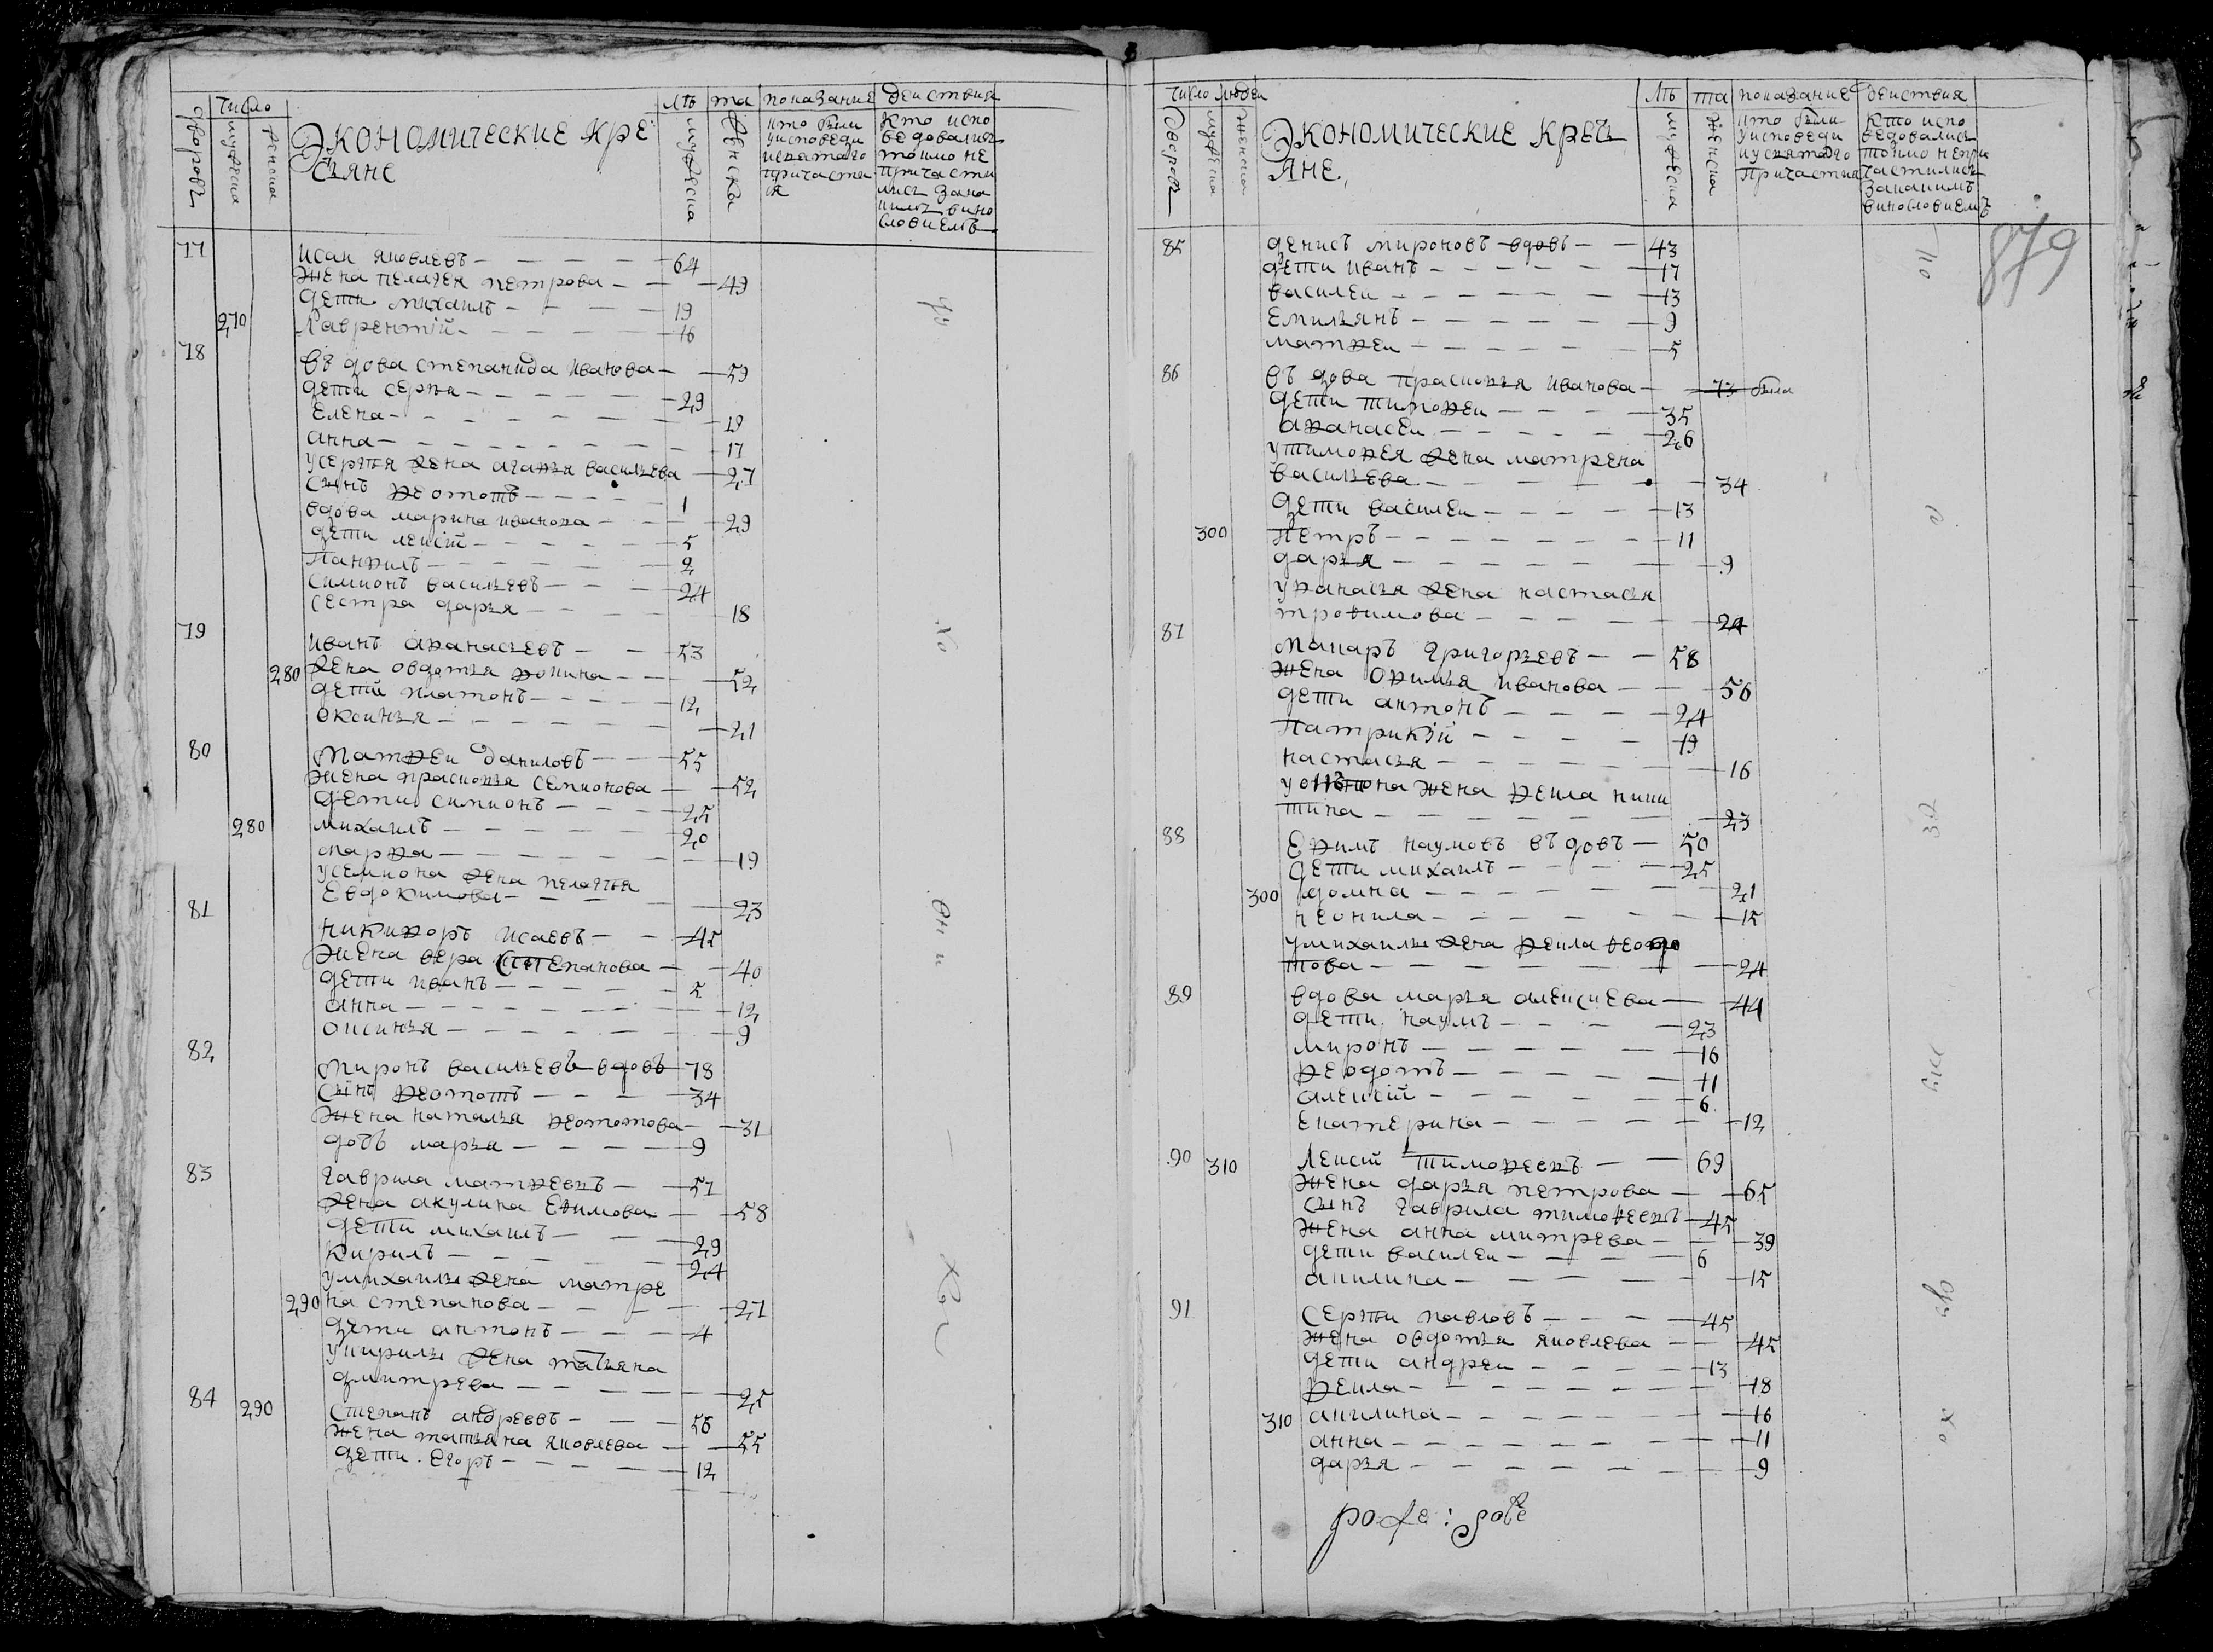 число
дворовъ
мужеска
женска
Экономические кре
стьяне
лѣ та
мужеска
женска
показание действия
кто были
у исповеди
и святаго
причасти
я
кто испо
ведовались
токмо не
причасти
лись зака
кимъ вино
словиемъ
77
исаи яковлевъ — 64
жена пелагея петрова — 49
дети михаилъ — 19
270 лаврентий — 16
78
въдова степанида иванова — 59
дети сергеи — 29
елена — 19
анна — 17
у сергея жена агафья васильева — 27
сынъ феототъ — 1
вдова марина иванова — 29
дети
панфилъ — 2
симионъ васильевъ — 24
сестра дарья — 18
79
иванъ афанасьевъ — 53
280 жена овдотья фокина — 52
дети платонъ — 12
оксинья — 21
80
матфеи даниловъ — 55
жена прасковья семионова — 52
дети симионъ — 25
280 михаилъ — 20
марфа — 19
у семиона жена пелагея
евдокимова — 23
81
никифоръ исаевъ — 45
жена вера степанова — 40
дети иванъ — 5
анна — 12
оксинья — 9
82
миронъ васильевъ вдовъ 78
сынъ феототъ — 34
жена наталья феототова — 31
дочь марья — 9
83
гаврила матфеевъ — 57
жена акулина ефимова — 58
дети михаилъ — 29
кирилъ — 24
у михаилы жена матре
290 на степанова — 27
дети антонъ — 4
у кирилы жена татьяна
дмитрева — 25
84 290
степанъ андреевъ — 56
жена татьяна яковлева — 55
дети егоръ — 12
число людеи
дворовъ
мужеска
женска
Экономические кресть
яне
лѣ та
мужеска
женска
показание действия
кто были
у исповеди
и у святаго
причастия
кто испо
ведовались
токмо непри
частились
закакимъ
винословиемъ
879
85
денисъ мироновъ вдовъ — 43
дети иванъ — 17
василеи — 13
емильянъ — 9
матфеи — 5
86
въдова прасковья иванова — 73 была
дети тимофеи — 35
афанасеи — 26
у тимофея жена матрена
васильева — 34
дети василеи — 13
300 петръ — 11
дарья — 9
у фанасья жена настасья
трофимова — 24
87
макаръ григорьевъ — 58
жена офимья иванова — 56
дети антонъ — 24
патрикий — 19
настасья — 16
жена фекла ники
тина — 23
88
ефимъ наумовъ въдовъ — 50
дети михаилъ — 25
300 домна — 21
неонила — 15
у михаилы жена фекла феодо
това — 24
89
вдова марья алексиева — 44
дети наумъ — 23
миронъ — 16
феодотъ — 11
алексий — 6
екатерина — 12
90 310
тимофеевъ — 69
жена дарья петрова — 65
сынъ гаврила тимофеевъ — 45
жена анна митрева — 39
дети василеи — 6
акилина — 15
91
сергеи павловъ — 45
жена овдотья яковлева — 45
дети андреи — 13
фекла — 18
310 акилина — 16
анна — 11
дарья — 9